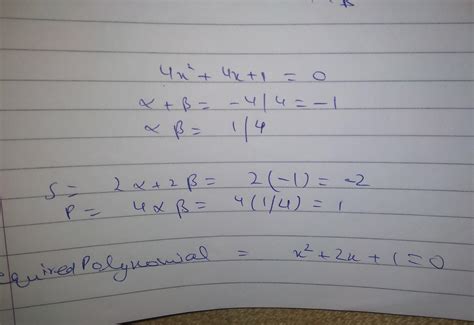 β
4x² + 4x + 1 = 0
α + β = -4/4 = -1
α β = 1/4
S = 2α + 2β = 2(-1) = -2
P = 4αβ = 4(1/4) = 1
equired Polynomial = x² + 2x + 1 = 0